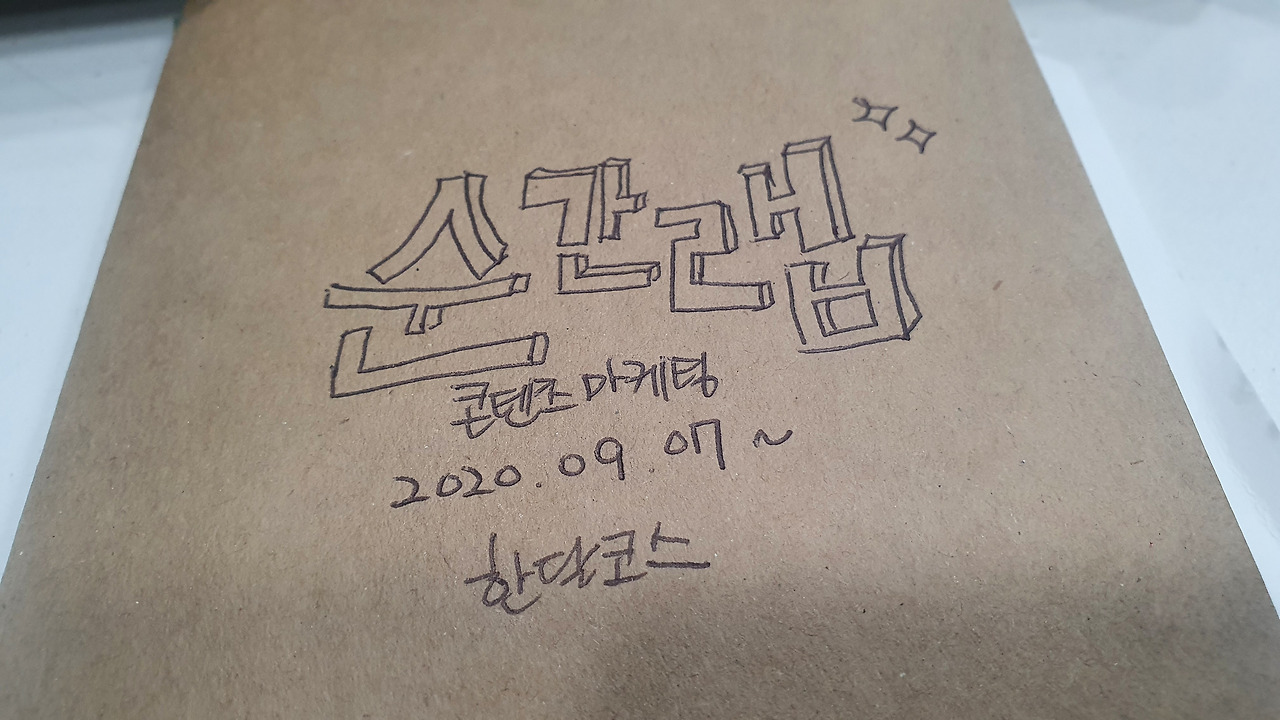 순간랩
콘텐츠 마케팅
2020. 09 07 ~
한달코스